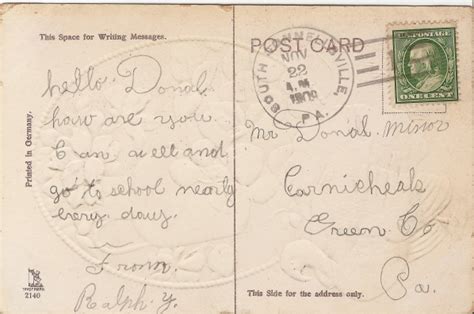 This Space for Writing Messages.
POST CARD
SOUTH CONNELLSVILLE,
NOV
22
1909
PA.
ONE CENT
hello Donal
how are you
I am well and
go to school nearly
every day.
From
Ralph Y.
Mr Donal Minor
Carmicheals
Green Co
Pa.
Printed in Germany.
2140
This Side for the address only.